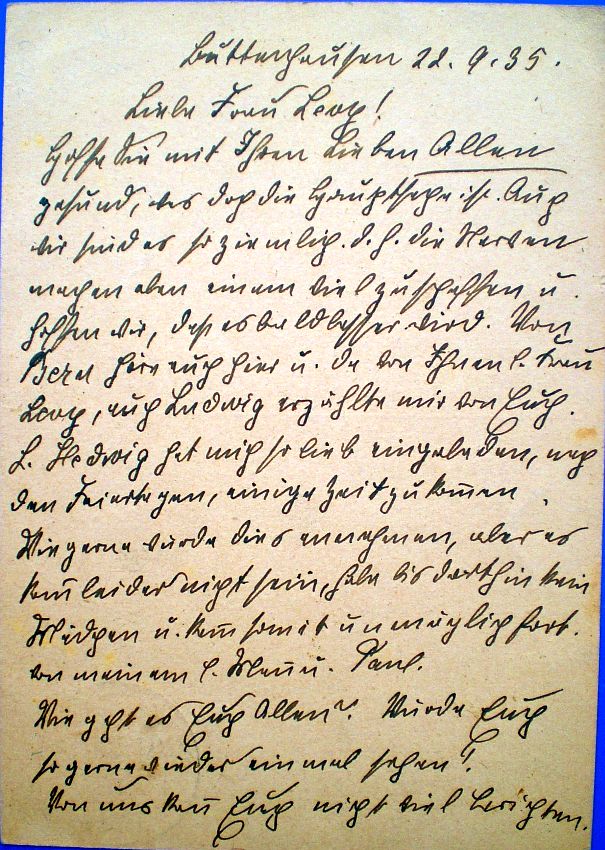 Buttenhausen 22.9.35.
Liebe Frau Loop!
Hoffe Sie mit Ihren Lieben Allen
gesund, was doch die Hauptsache ist. Auch
wir sind es so ziemlich. d. h. die Nerven
machen eben einem viel zu schaffen u.
hoffen wir, dass es bald besser wird. Von
Bern höre auch hier u. da von Ihnen l. Frau
Loop, auch Ludwig erzählte mir von Euch.
L. Hedwig hat mich so lieb eingeladen, nach
den Feiertagen, einige Zeit zu kommen.
Wie gerne würde dies annehmen, aber es
kann leider nicht sein, habe bis dorthin kein
Mädchen u. kann somit unmöglich fort.
von meinem l. Mann u. Paul.
Wie geht es Euch Allen? Würde Euch
so gerne wieder einmal sehen!
Von uns kann Euch nicht viel berichten.